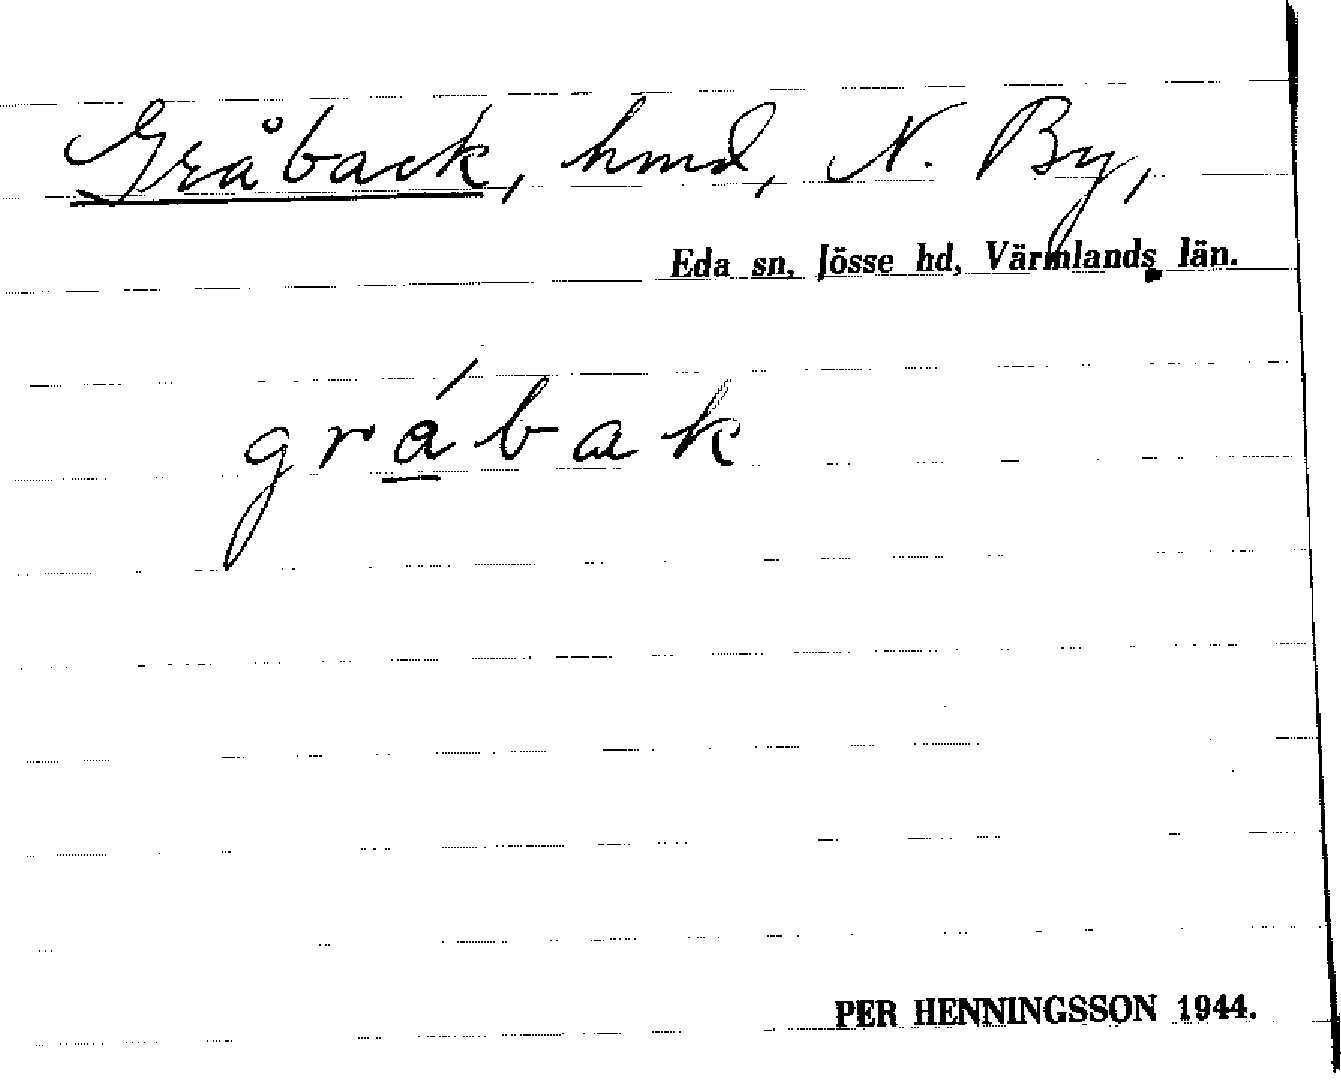 Gråback, hmd, N. By,
Eda sn, Jösse hd, Värmlands län.
grábak
PER HENNINGSSON 1944.